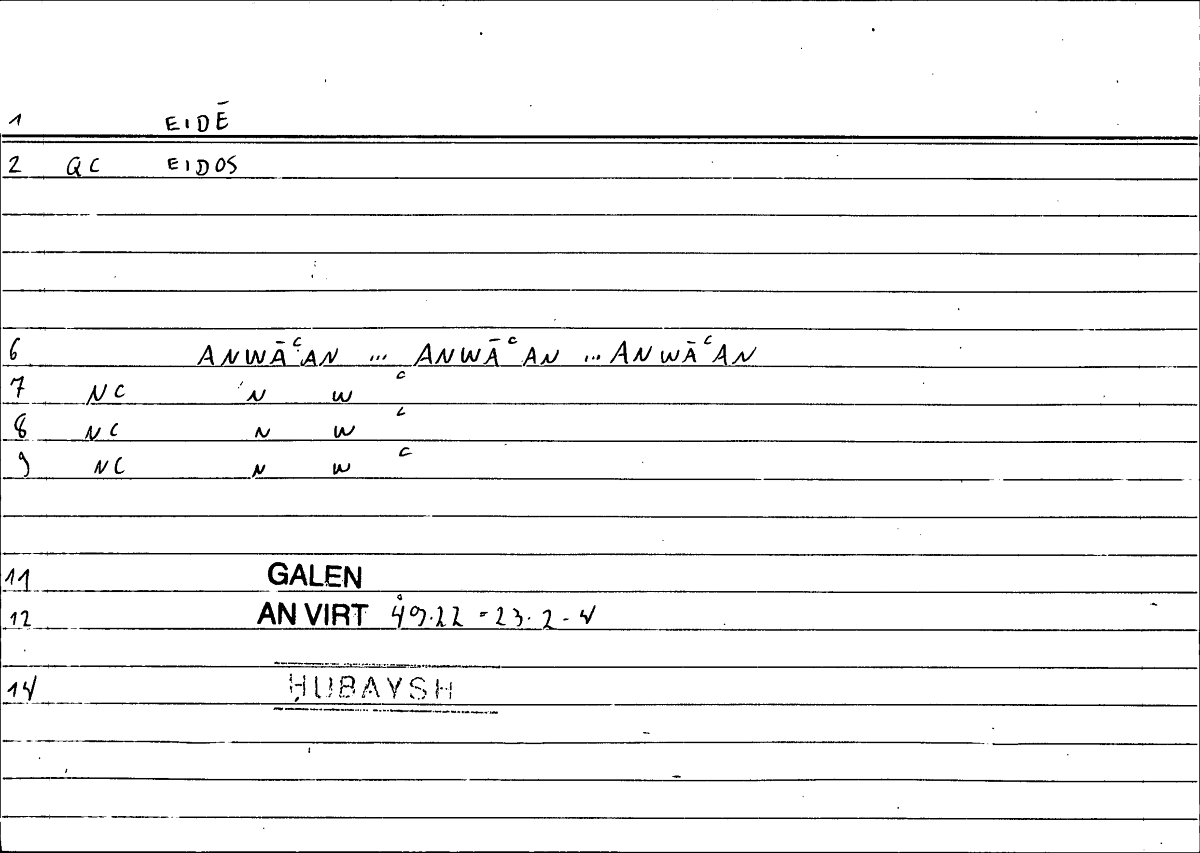 1 EIDĒ
2 QC EIDOS
6 ANWĀᶜAN ... ANWĀᶜAN ... ANWĀᶜAN
7 NC N W ᶜ
8 NC N W ᶜ
9 NC N W ᶜ
11 GALEN
12 AN VIRT 49.22 - 23. 2 - 4
14 ḤUBAYSH